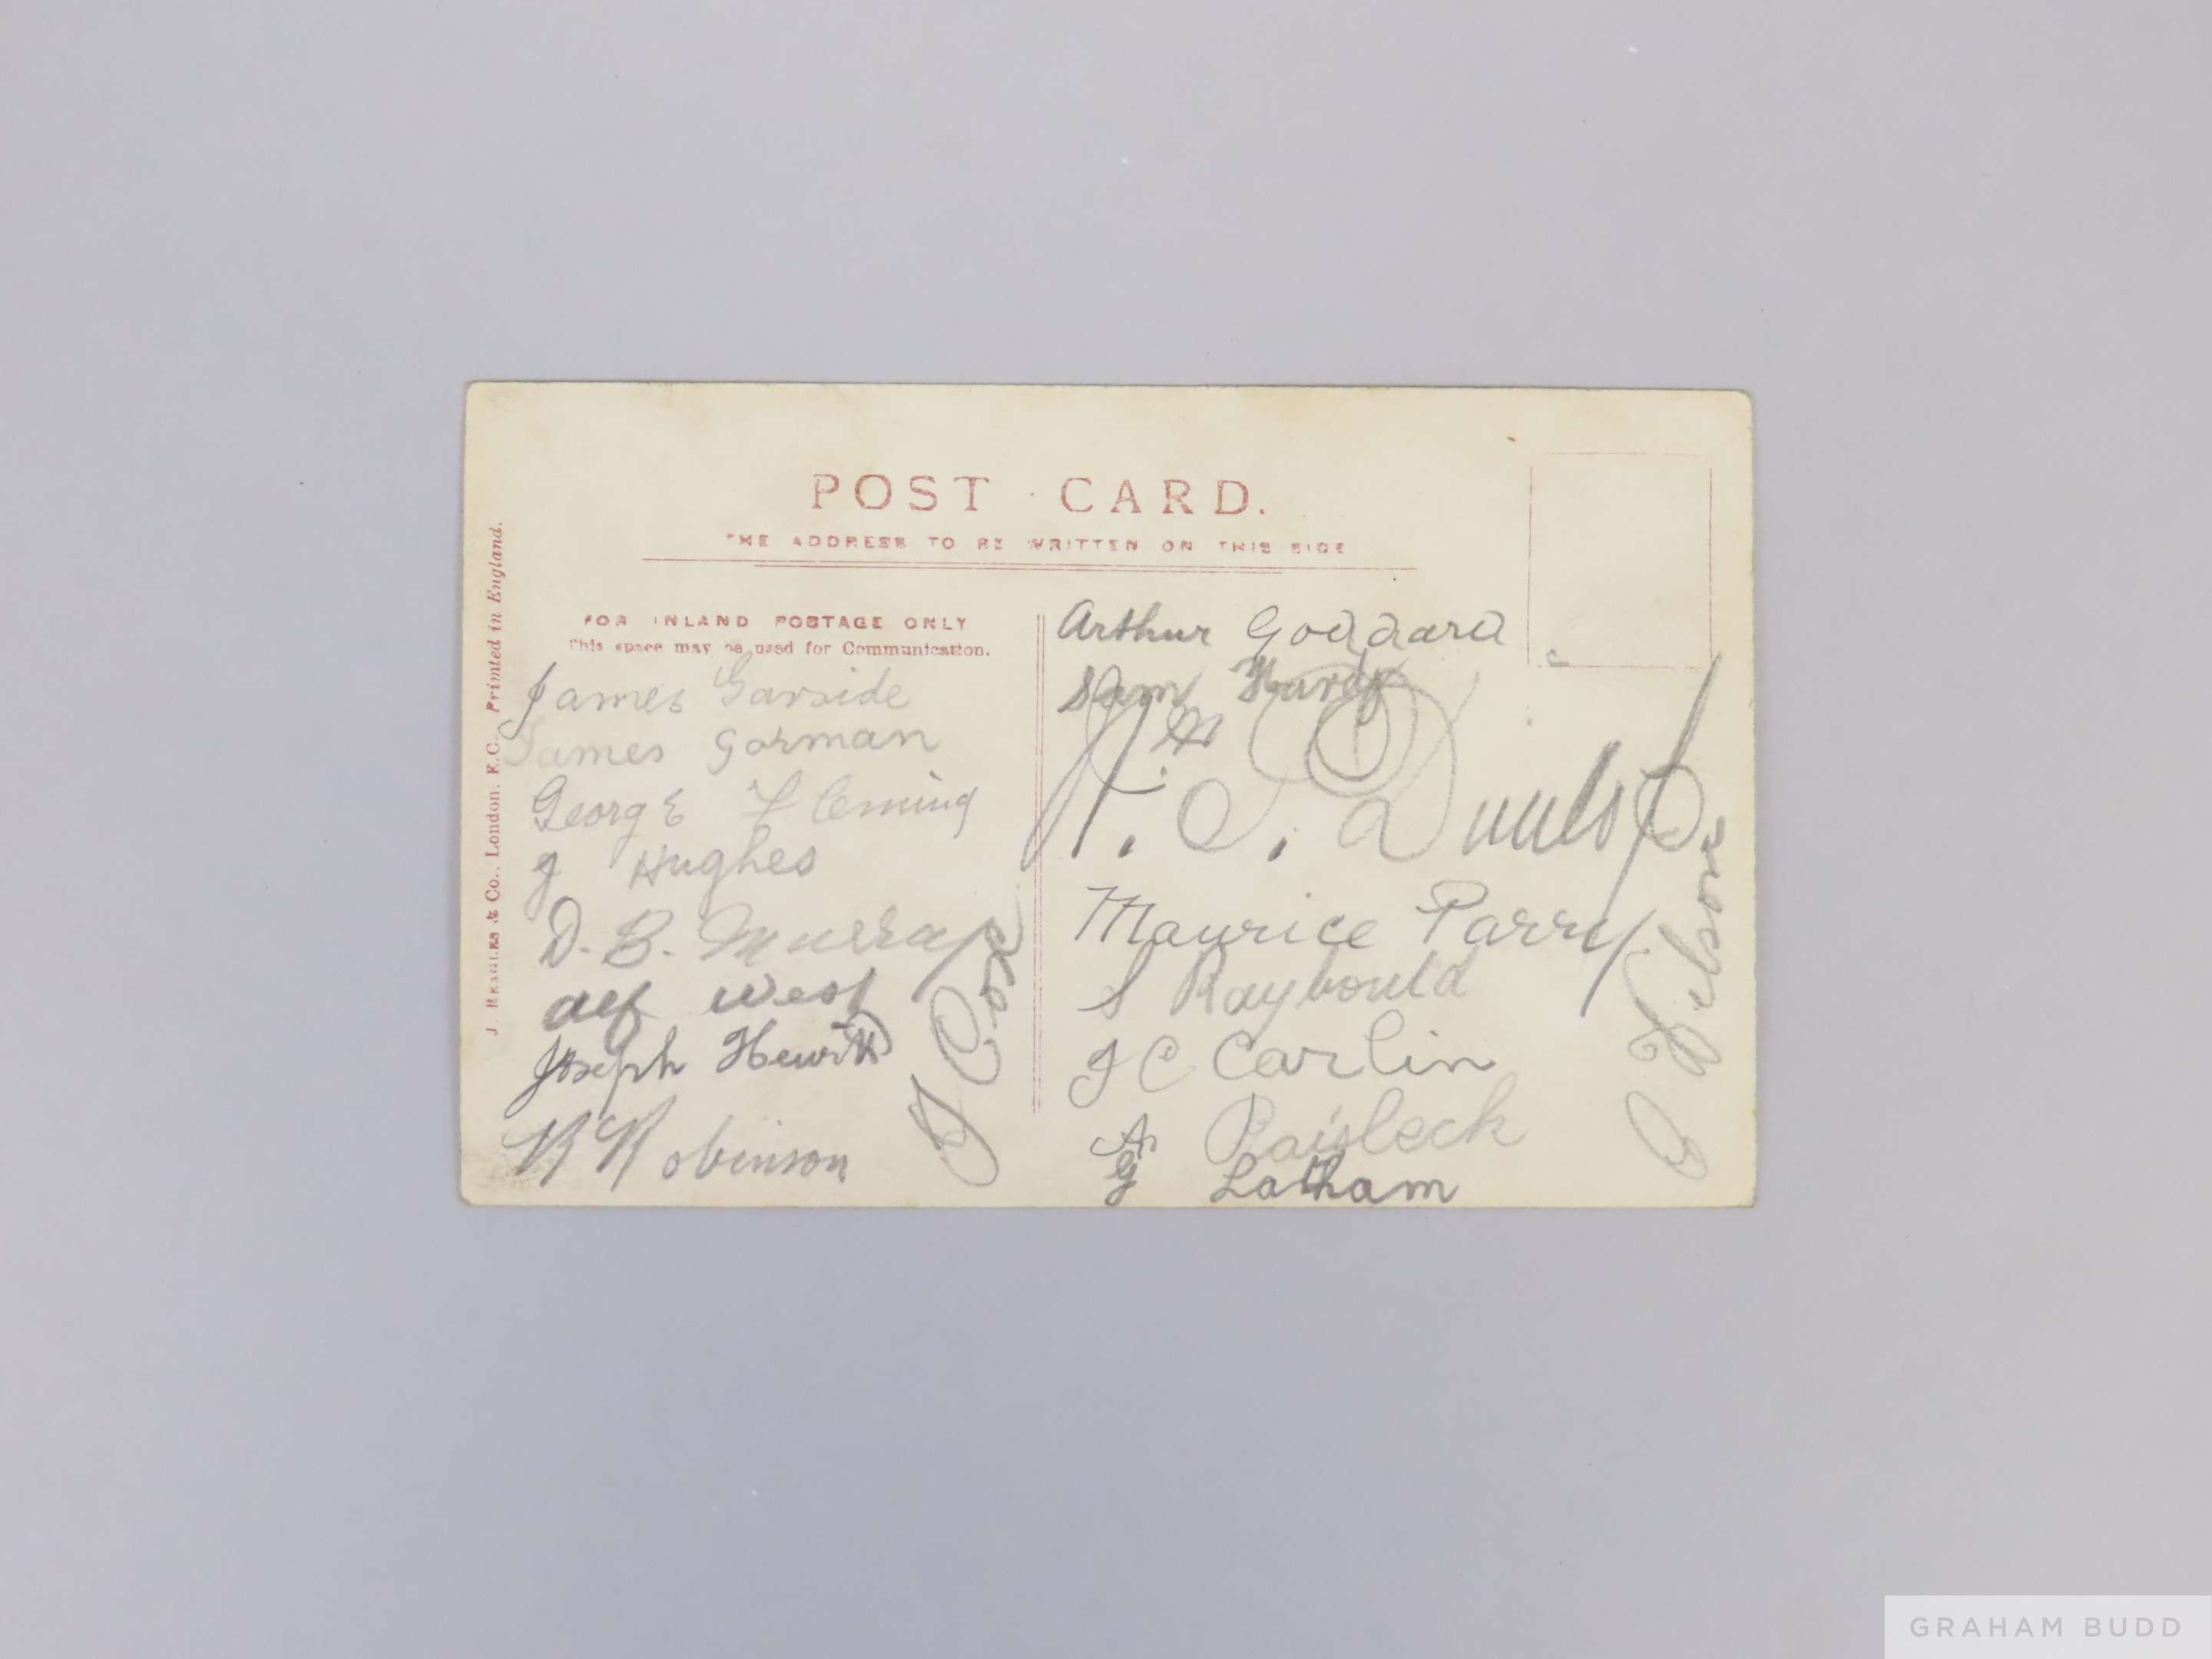 POST CARD.
THE ADDRESS TO BE WRITTEN ON THIS SIDE
FOR INLAND POSTAGE ONLY
This space may be used for Communication.
J. BEAGLES & Co., London, E.C. Printed in England.
James Garside
James Gorman
George Fleming
J Hughes
D. B. Murray
Alf West
Joseph Hewitt
R Robinson
J Cox
Arthur Goddard
Sam Hardy
Maurice Parry
S Raybould
J C Carlin
A Raisbeck
G Latham
GRAHAM BUDD